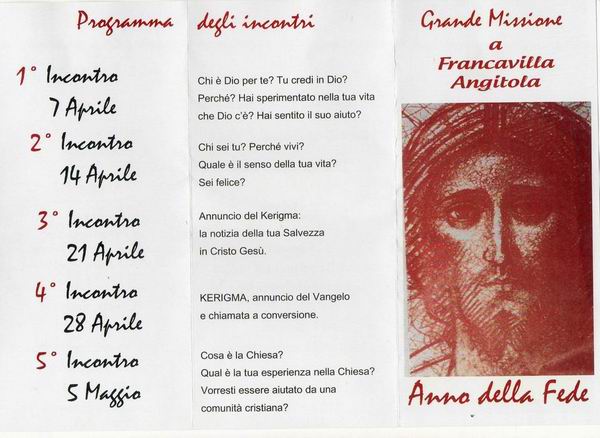 Programma degli incontri
1° Incontro
7 Aprile
Chi è Dio per te? Tu credi in Dio?
Perché? Hai sperimentato nella tua vita
che Dio c'è? Hai sentito il suo aiuto?
2° Incontro
14 Aprile
Chi sei tu? Perché vivi?
Quale è il senso della tua vita?
Sei felice?
3° Incontro
21 Aprile
Annuncio del Kerigma:
la notizia della tua Salvezza
in Cristo Gesù.
4° Incontro
28 Aprile
KERIGMA, annuncio del Vangelo
e chiamata a conversione.
5° Incontro
5 Maggio
Cosa è la Chiesa?
Qual è la tua esperienza nella Chiesa?
Vorresti essere aiutato da una
comunità cristiana?
Grande Missione
a
Francavilla
Angitola
Anno della Fede